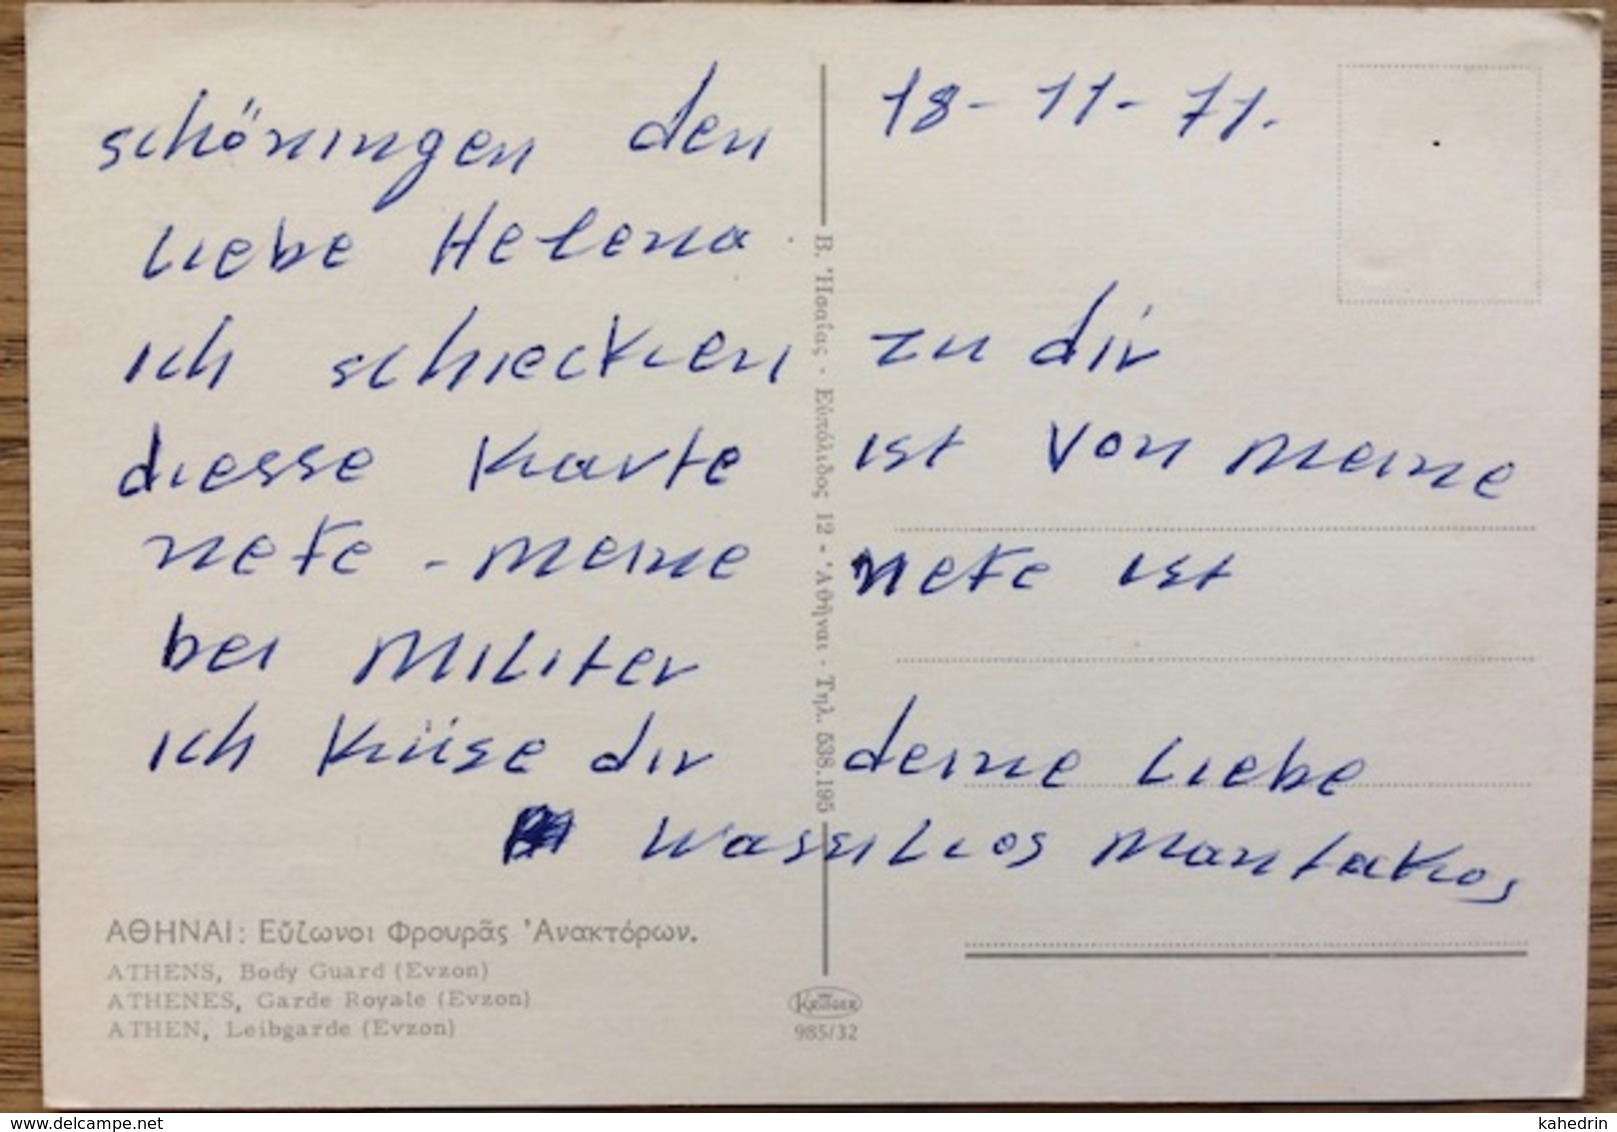 schöningen den 18-11-71.
Liebe Helena
ich schiecken zu dir
diesse Karte ist von meine
nefe - meine nefe ist
bei Militer
ich küse dir deine Liebe
Wassilios Mantakos
Β. Ἠσαΐας - Εὐπόλιδος 12 - Ἀθῆναι - Τηλ. 538.195
ΑΘΗΝΑΙ: Εὔζωνοι Φρουρᾶς Ἀνακτόρων.
ATHENS, Body Guard (Evzon)
ATHENES, Garde Royale (Evzon)
ATHEN, Leibgarde (Evzon)
KRÜGER
985/32
www.delcampe.net
kahedrin